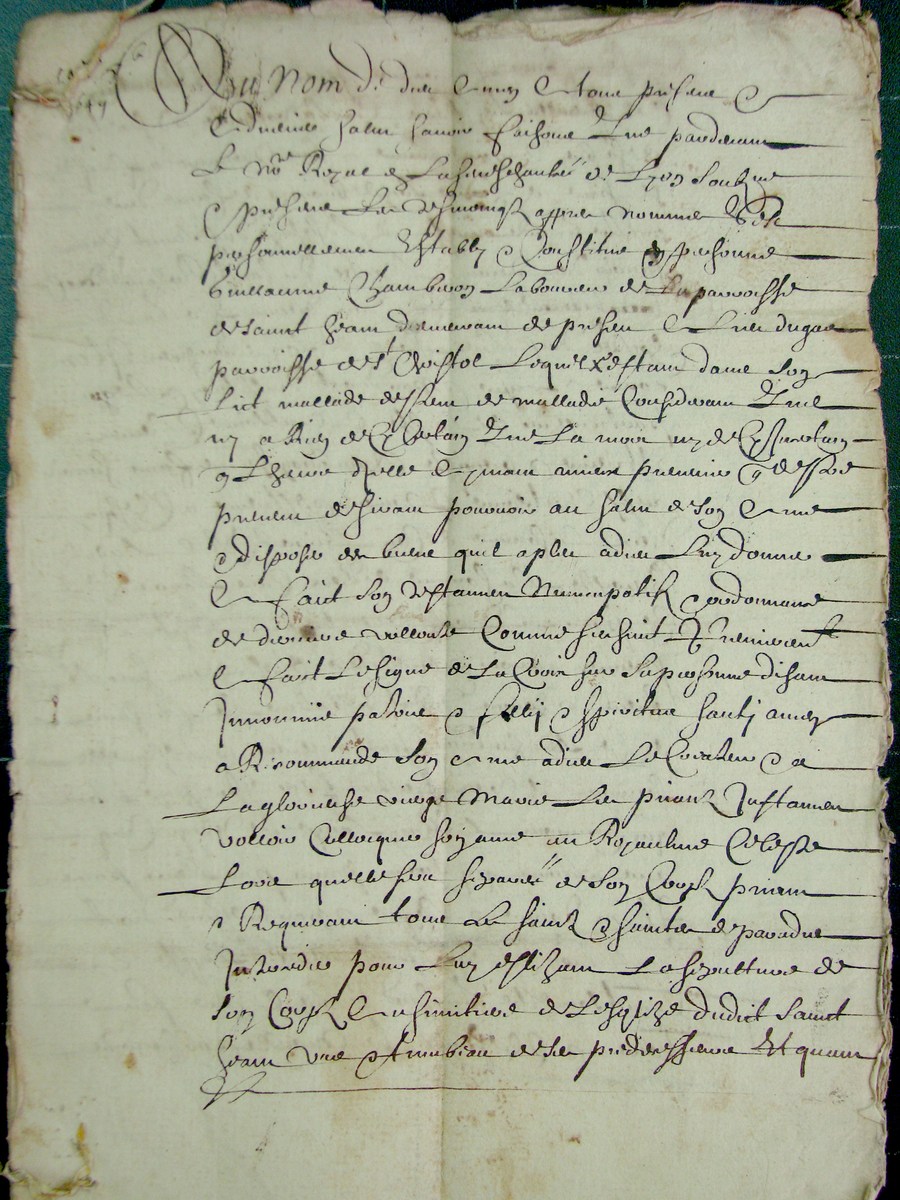 Au Nom de dieu amen A tous presens &
advenir salut savoir faisons que pardevant
le nore Royal en la seneschaulcé de Lyon soubzne
& presens les tesmoingz appres nommes
personnellement estably & constitue en personne
Guillaume Chambeyron laboureur de la parroisse
de saint Jean de present
parroisse de st Christol lequel estant dans son
lict mallade de malladie considerant que
ny a Rien de sy certain que la mort ny de sy Incertain
que lheure dicelle aymant mieux prevenir que destre
prevenu desirant pourvoir au salut de son ame
& disposer des biens quil a pleu a dieu luy donner
a faict son testament Nuncupatif & ordonnance
de derniere vollonte comme sensuit Et premierement
a faict le signe de la Croix sur sa personne disant
In nomine patris & filij & spiritus santj amen
a Recommande son ame a dieu le Createur & a
la glorieuse vierge Marie les priant Instamment
voulloir collocquer son ame au Royaulme Celeste
lors quelle sera separeé de son Corps priant
& Requerant tous les saintz & saintes de paradis
Interceder pour luy eslizant la sepulture de
son Corps au simitiere de lesglize dudict saint
Jean tombeau de ses predecesseurs Et quant